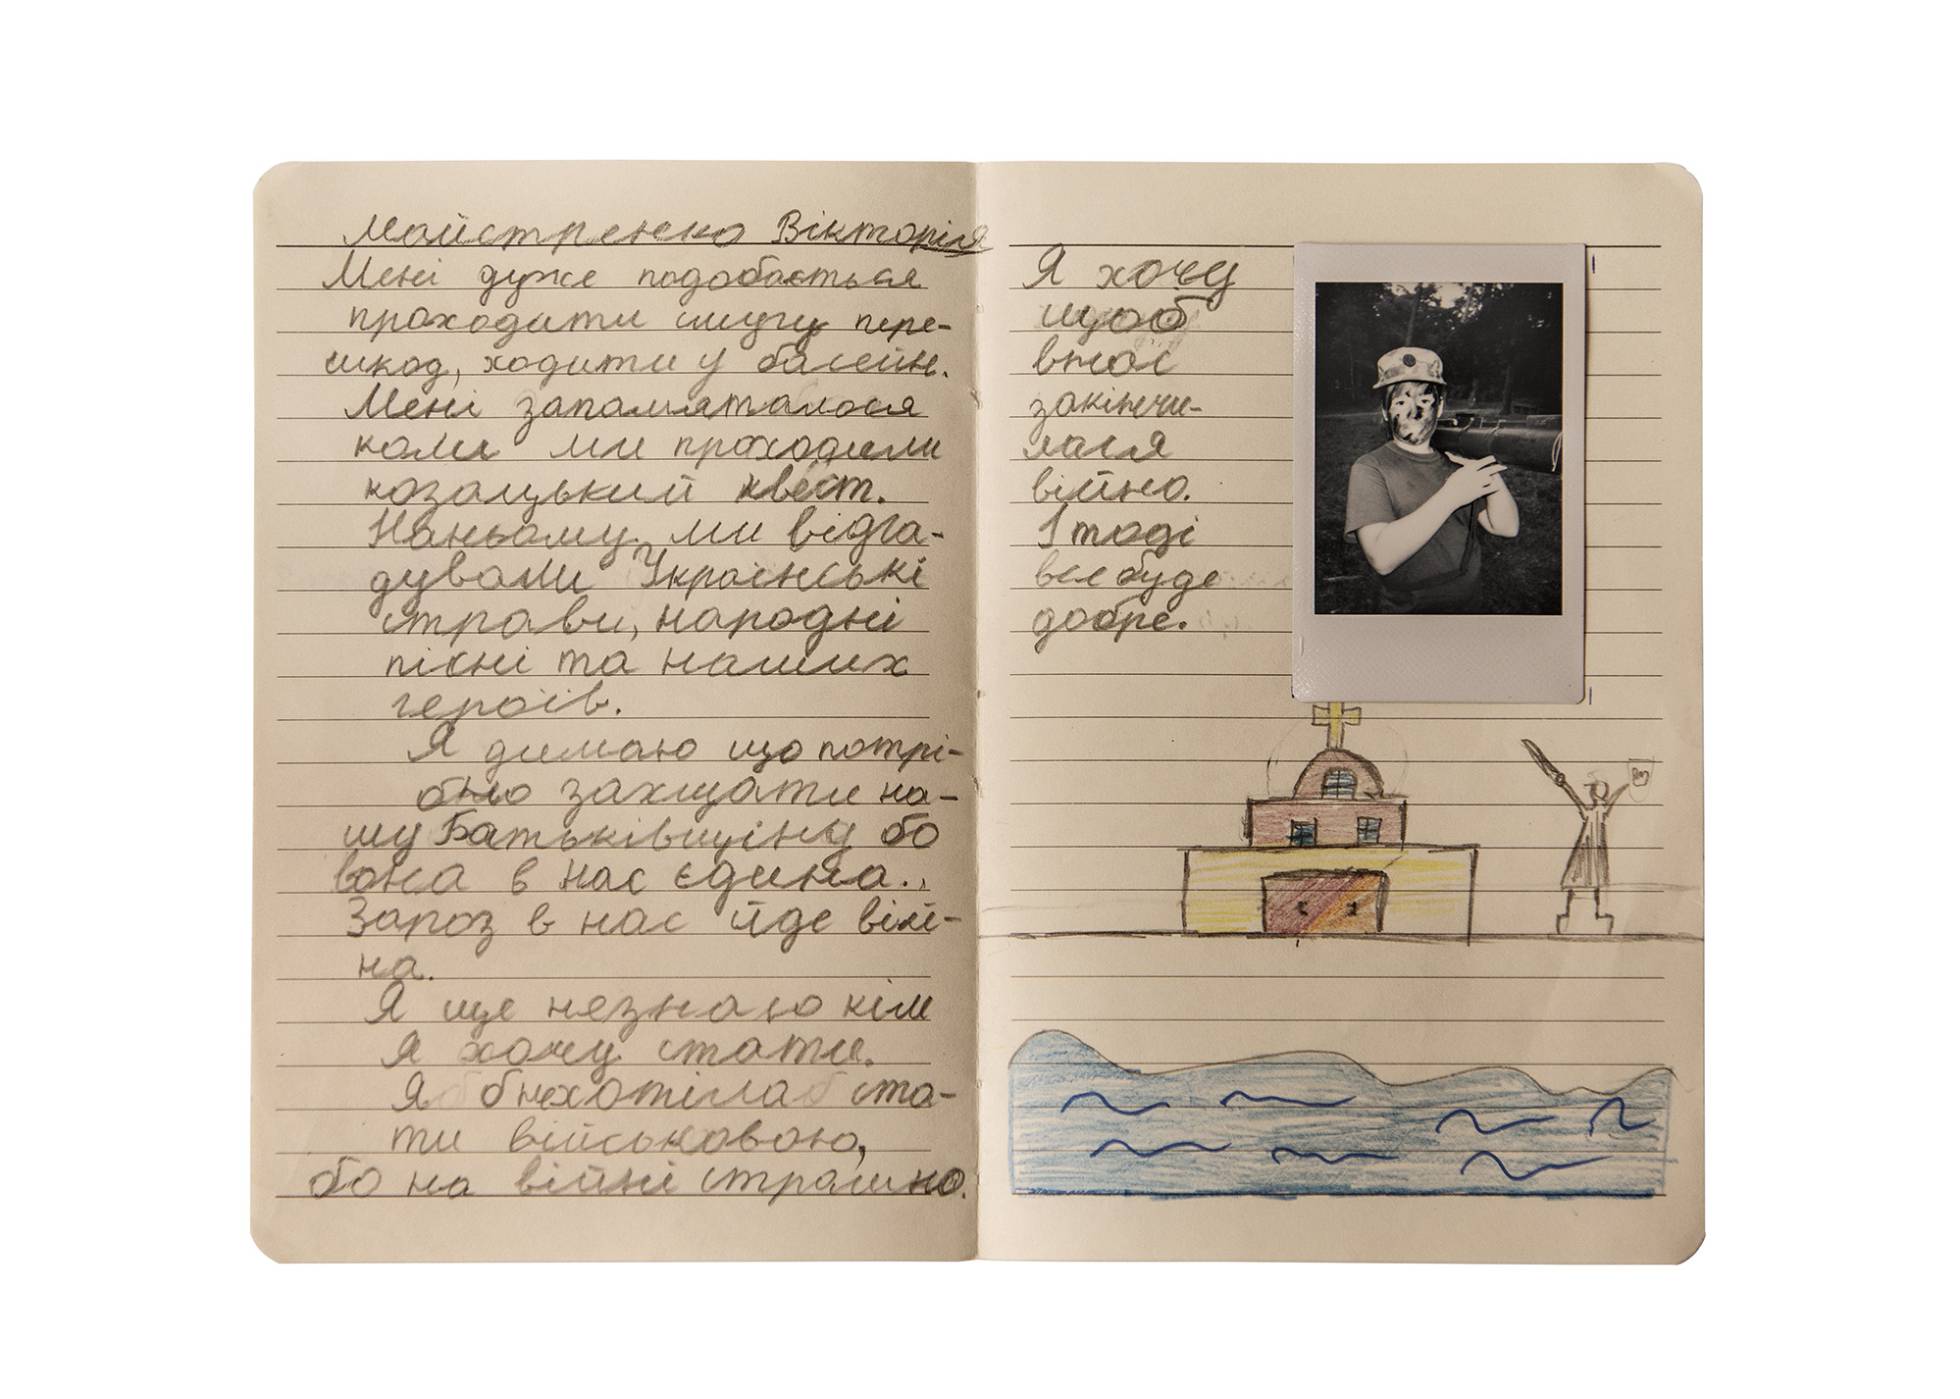 Майстренко Вікторія
Мені дуже подобається
проходити смугу пере-
шкод, ходити у басейн.
Мені запамяталося
коли ми проходили
козацький квест.
Наньому ми відга-
дували Українські
страви, народні
пісні та наших
героїв.
Я думаю що потрі-
бно захищати на-
шу Батьківщіну бо
вона в нас єдина.
Зараз в нас йде вій-
на.
Я ще незнаю ким
я хочу стати.
Я б нехотіла ста-
ти військовою,
бо на війні страшно.
Я хочу
щоб
внас
закінчи-
лася
війна.
І тоді
все буде
добре.